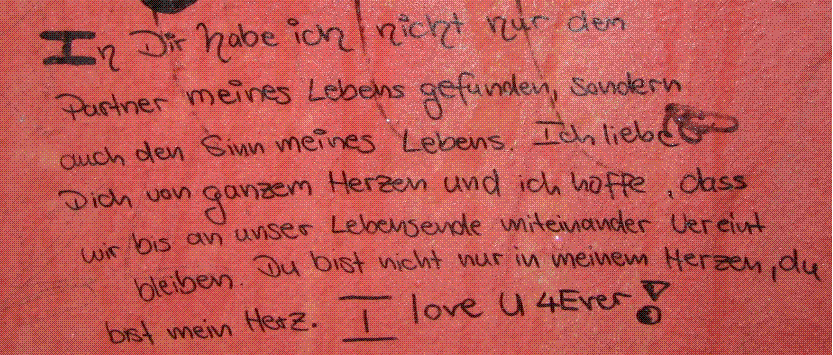 In Dir habe ich nicht nur den
Partner meines Lebens gefunden, sondern
auch den Sinn meines Lebens. Ich liebe
Dich von ganzem Herzen und ich hoffe, dass
wir bis an unser Lebensende miteinander Vereint
bleiben. Du bist nicht nur in meinem Herzen, du
bist mein Herz. I love U 4Ever!